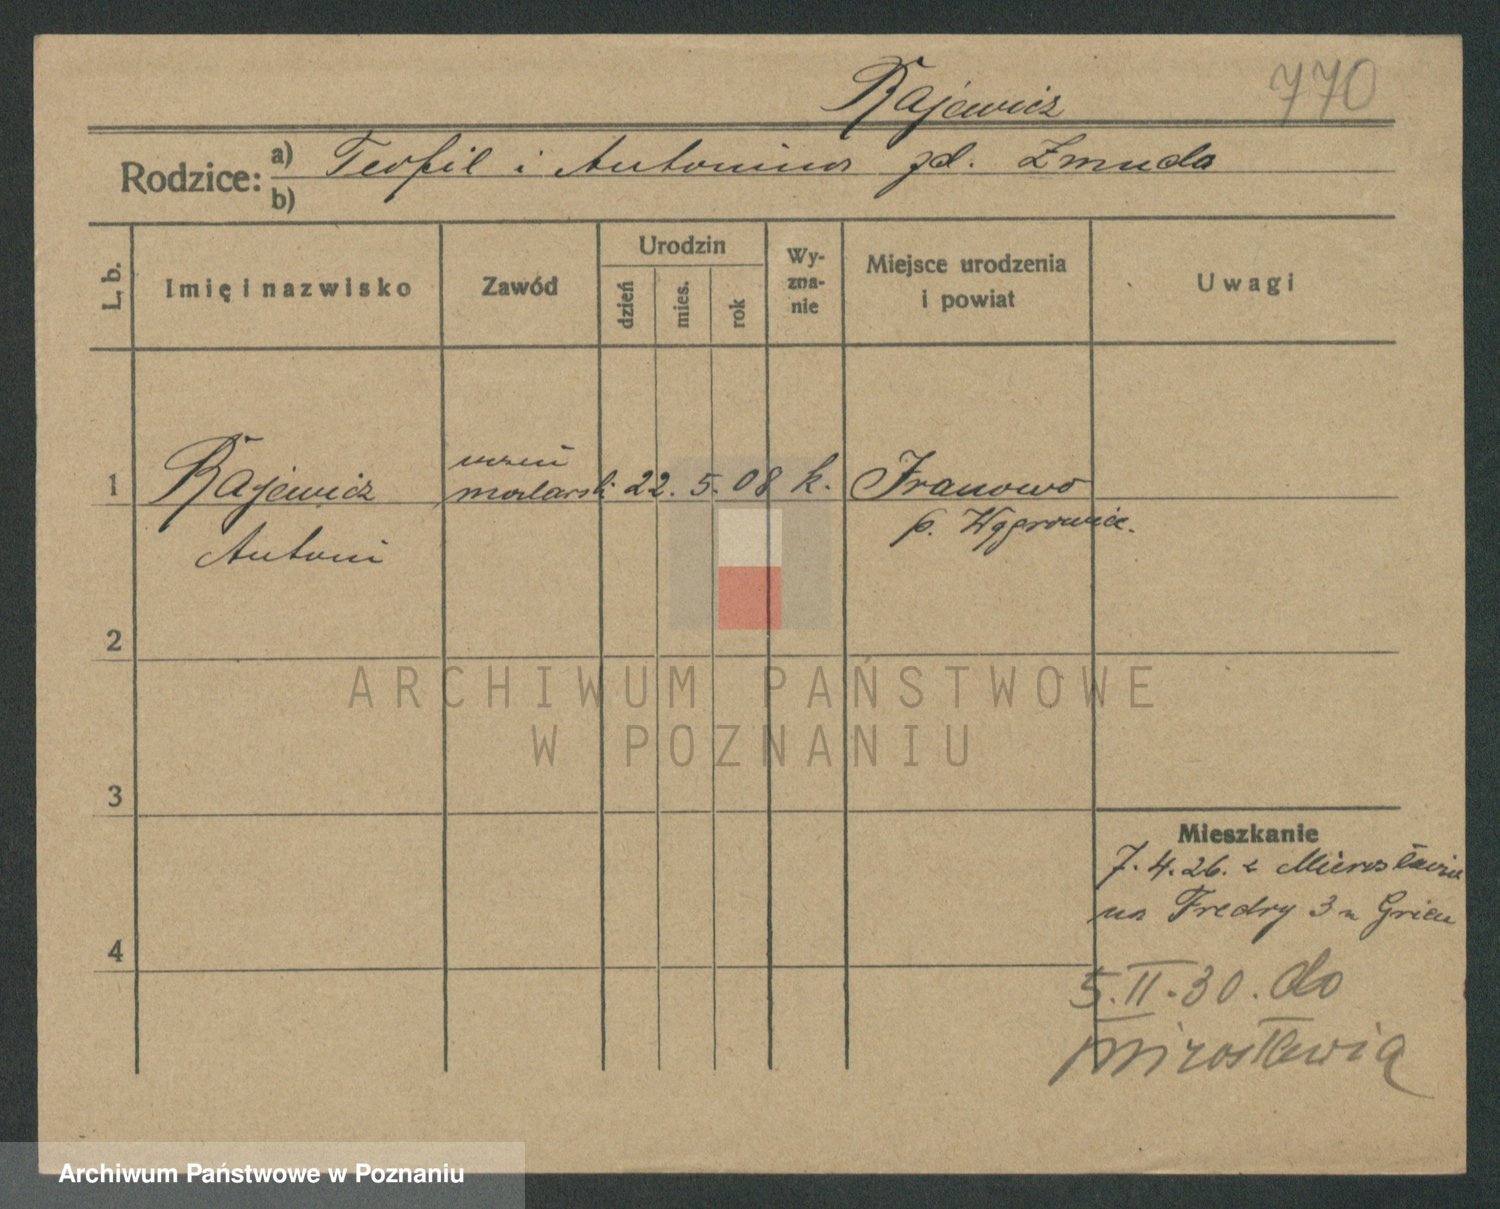 Rajewicz
770
Rodzice: a) Teofil i Antonina zd. Żmuda
b)
L. b.
Imię i nazwisko
Zawód
Urodzin
dzień
mies.
rok
Wy-
zna-
nie
Miejsce urodzenia
i powiat
Uwagi
uczeń
1 Rajewicz malarski 22. 5. 08 k.
Antoni
p. Wągrowiec.
2
ARCHIWUM PAŃSTWOWE
W POZNANIU
3
Mieszkanie
7. 4. 26. z
4
na Fredry 3
5.II.30. do
Archiwum Państwowe w Poznaniu